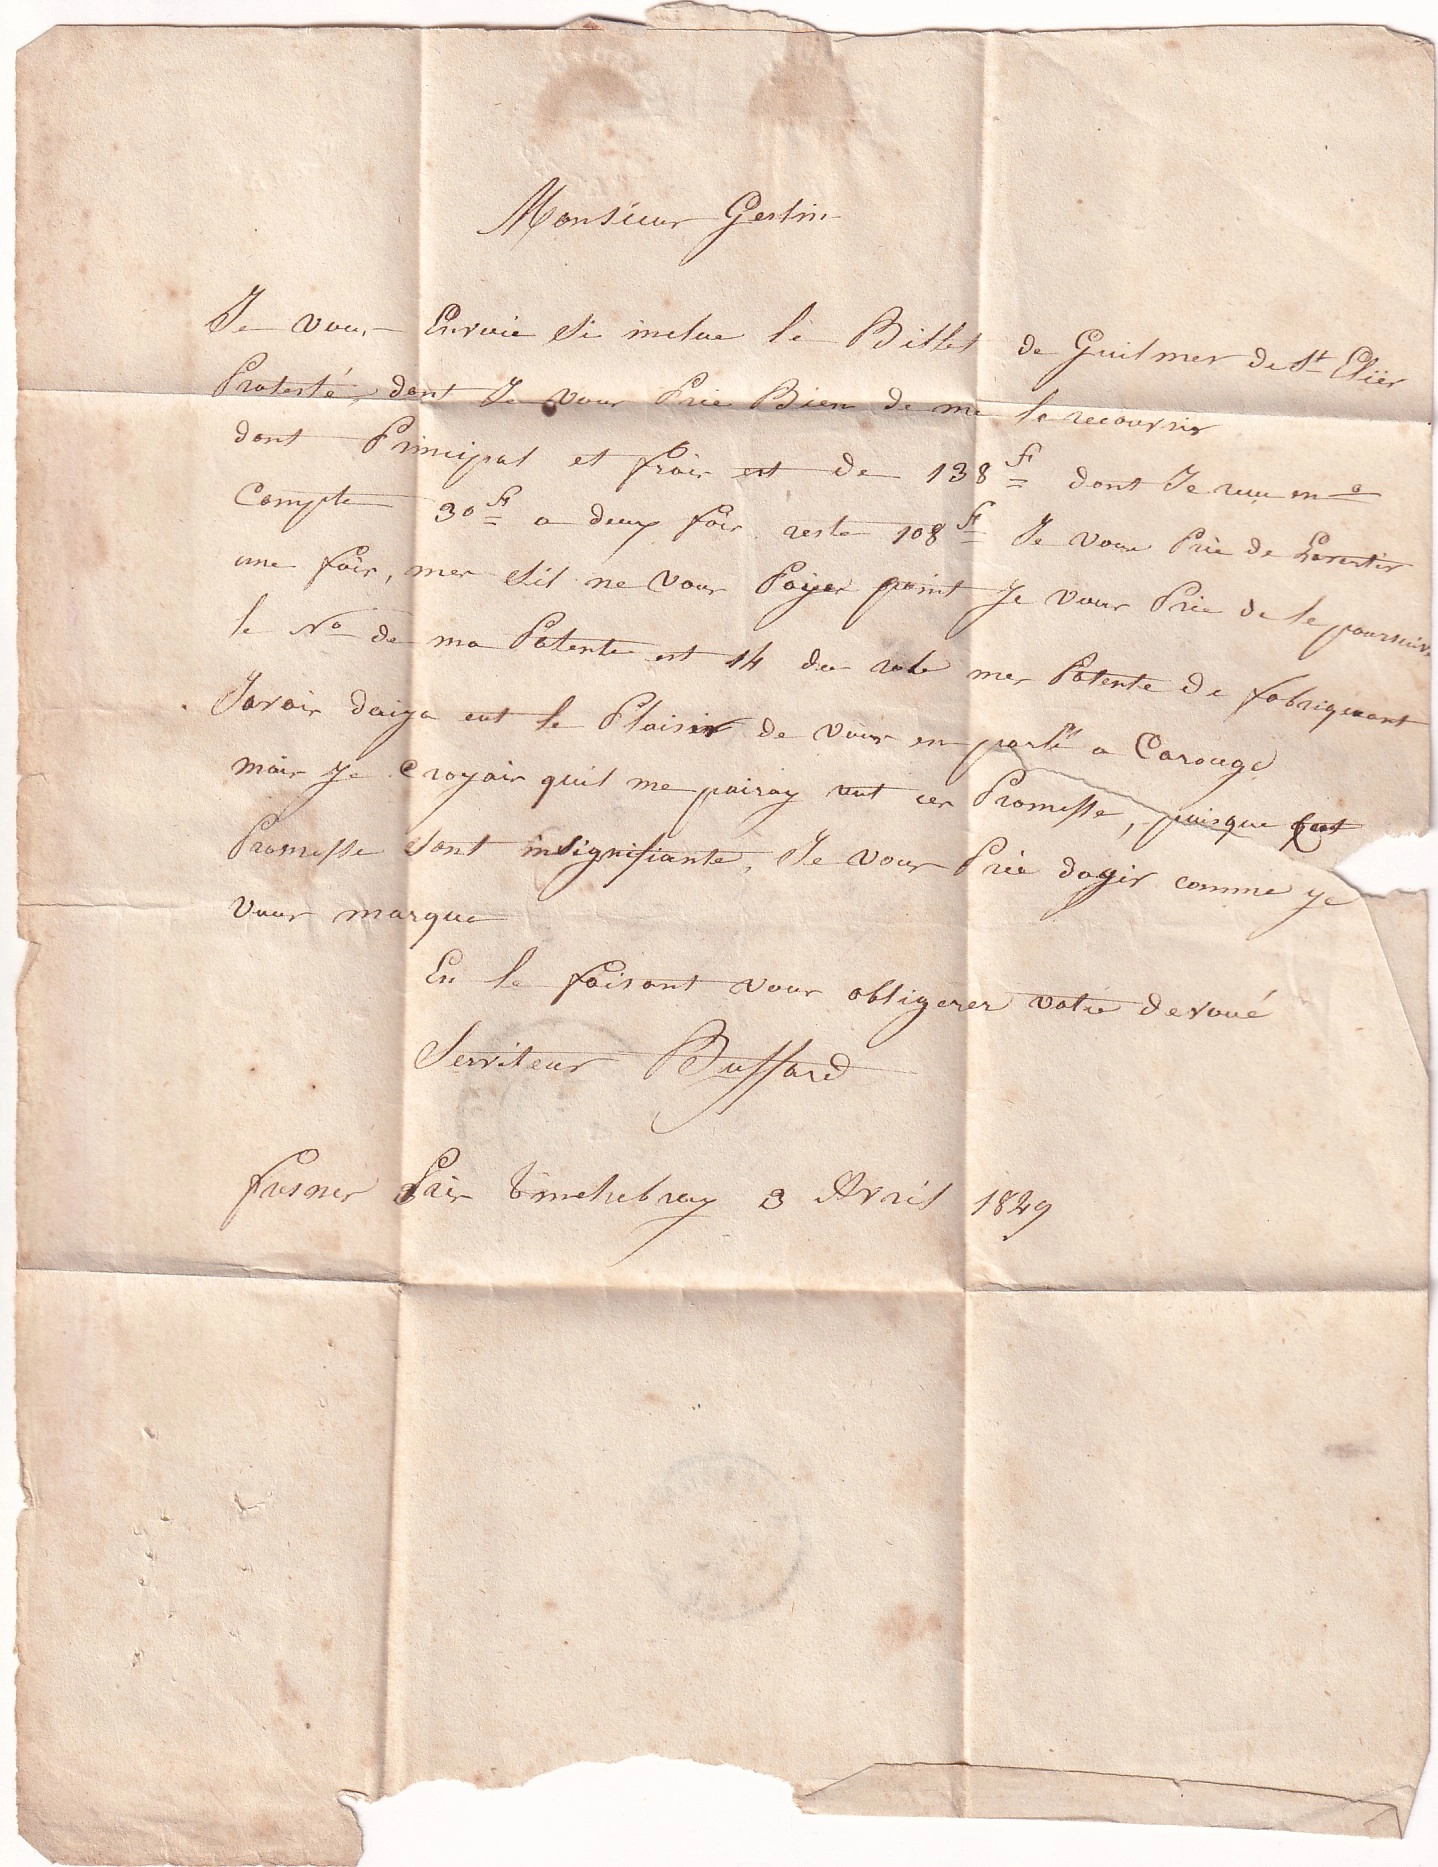 Monsieur Gestin
Je vous Envoie Si inclue le Billet de Guilmer de St Ellier
Protesté, dont Je vous Prie Bien de me le recouvrir
dont Principal et frais est de 138 f dont Je reçu en a
Compte 30 f a deux fois reste 108 f Je vous Prie de Lavertir
une fois, mes Sil ne vous Payer point Je vous Prie de le poursuivre
le No de ma Patente est 14 du role mes Patente de fabriquant
Javais deija eut le Plaisir de vous en parlé a Carouge
mais je croyais quil me pairay eut ces Promesse, puisque ces
Promesse sont insignifiante, Je vous Prie dagir comme je
vous marque
En le faisant vous obligerer votre devoué
Serviteur Buffard
fresnes Près tinchebray 3 Avril 1849